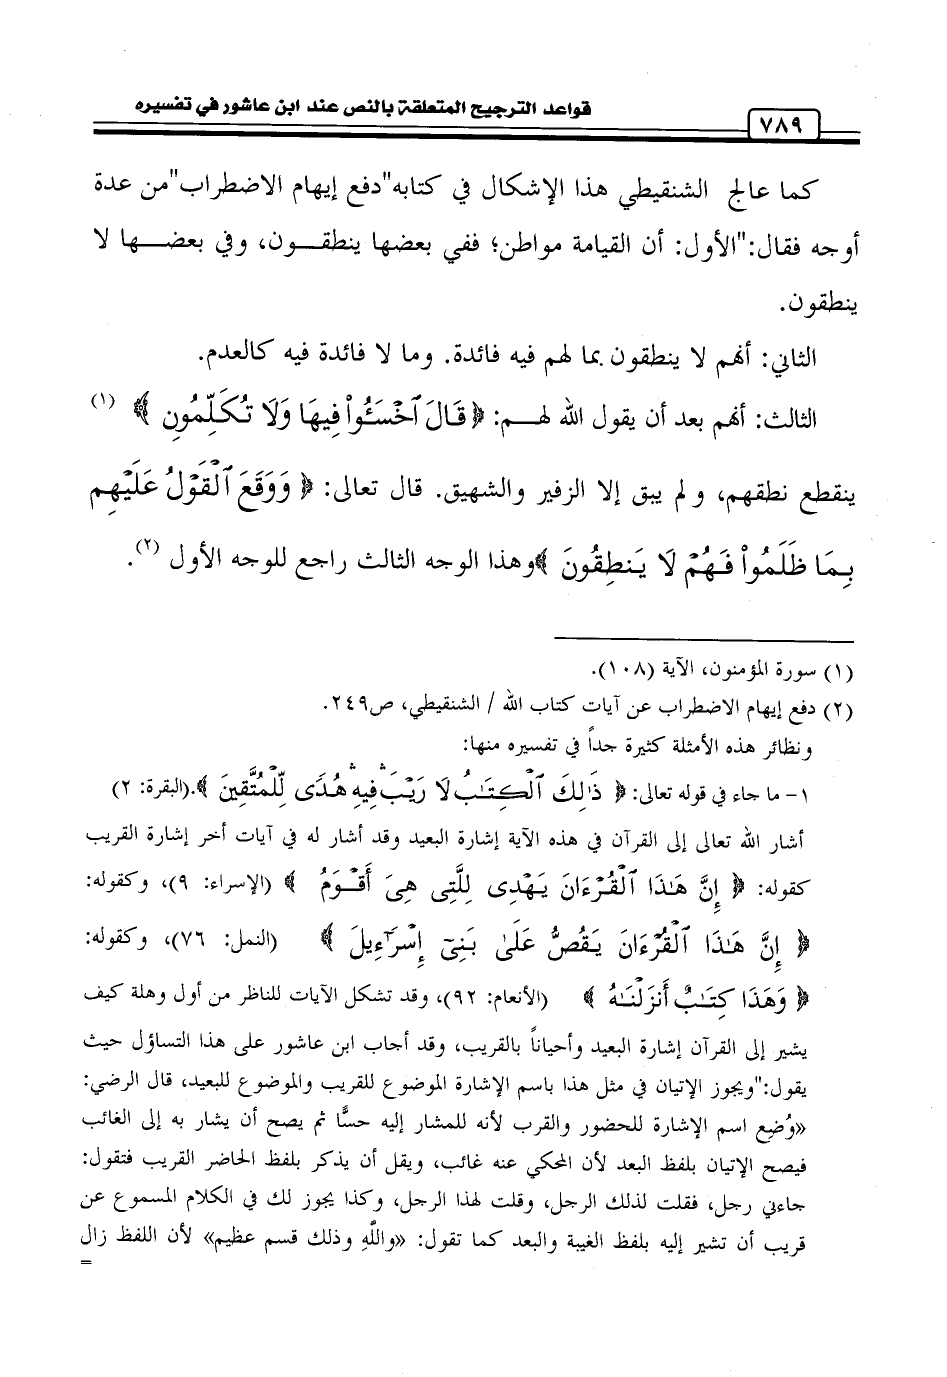 قواعد الترجيح المتعلقة بالنص عند ابن عاشور في تفسيره
٧٨٩
كما عالج الشنقيطي هذا الإشكال في كتابه"دفع إيهام الاضطراب"من عدة
أوجه فقال:"الأول: أن القيامة مواطن؛ ففي بعضها ينطقـــون، وفي بعضـــها لا
ينطقون.
الثاني: أنهم لا ينطقون بما لهم فيه فائدة. وما لا فائدة فيه كالعدم.
الثالث: أنهم بعد أن يقول الله لهــم: ﴿ قَالَ ٱخْسَـُٔوا۟ فِيهَا وَلَا تُكَلِّمُونِ ﴾ (١)
ينقطع نطقهم، ولم يبق إلا الزفير والشهيق. قال تعالى: ﴿ وَوَقَعَ ٱلْقَوْلُ عَلَيْهِم
بِمَا ظَلَمُوا۟ فَهُمْ لَا يَنطِقُونَ ﴾وهذا الوجه الثالث راجع للوجه الأول (٢).
(١) سورة المؤمنون، الآية (١٠٨).
(٢) دفع إيهام الاضطراب عن آيات كتاب الله / الشنقيطي، ص٢٤٩.
ونظائر هذه الأمثلة كثيرة جداً في تفسيره منها:
١- ما جاء في قوله تعالى: ﴿ ذَٰلِكَ ٱلْكِتَـٰبُ لَا رَيْبَ ۛ فِيهِ ۛ هُدًى لِّلْمُتَّقِينَ ﴾.(البقرة: ٢)
أشار الله تعالى إلى القرآن في هذه الآية إشارة البعيد وقد أشار له في آيات أخر إشارة القريب
كقوله: ﴿ إِنَّ هَـٰذَا ٱلْقُرْءَانَ يَهْدِى لِلَّتِى هِىَ أَقْوَمُ ﴾ (الإسراء: ٩)، وكقوله:
﴿ إِنَّ هَـٰذَا ٱلْقُرْءَانَ يَقُصُّ عَلَىٰ بَنِىٓ إِسْرَٰٓءِيلَ ﴾ (النمل: ٧٦)، وكقوله:
﴿ وَهَـٰذَا كِتَـٰبٌ أَنزَلْنَـٰهُ ﴾ (الأنعام: ٩٢)، وقد تشكل الآيات للناظر من أول وهلة كيف
يشير إلى القرآن إشارة البعيد وأحياناً بالقريب، وقد أجاب ابن عاشور على هذا التساؤل حيث
يقول:"ويجوز الإتيان في مثل هذا باسم الإشارة الموضوع للقريب والموضوع للبعيد، قال الرضي:
«وُضِع اسم الإشارة للحضور والقرب لأنه للمشار إليه حسًّا ثم يصح أن يشار به إلى الغائب
فيصح الإتيان بلفظ البعد لأن المحكي عنه غائب، ويقل أن يذكر بلفظ الحاضر القريب فتقول:
جاءني رجل، فقلت لذلك الرجل، وقلت لهذا الرجل، وكذا يجوز لك في الكلام المسموع عن
قريب أن تشير إليه بلفظ الغيبة والبعد كما تقول: «واللَّهِ وذلك قسم عظيم» لأن اللفظ زال
=